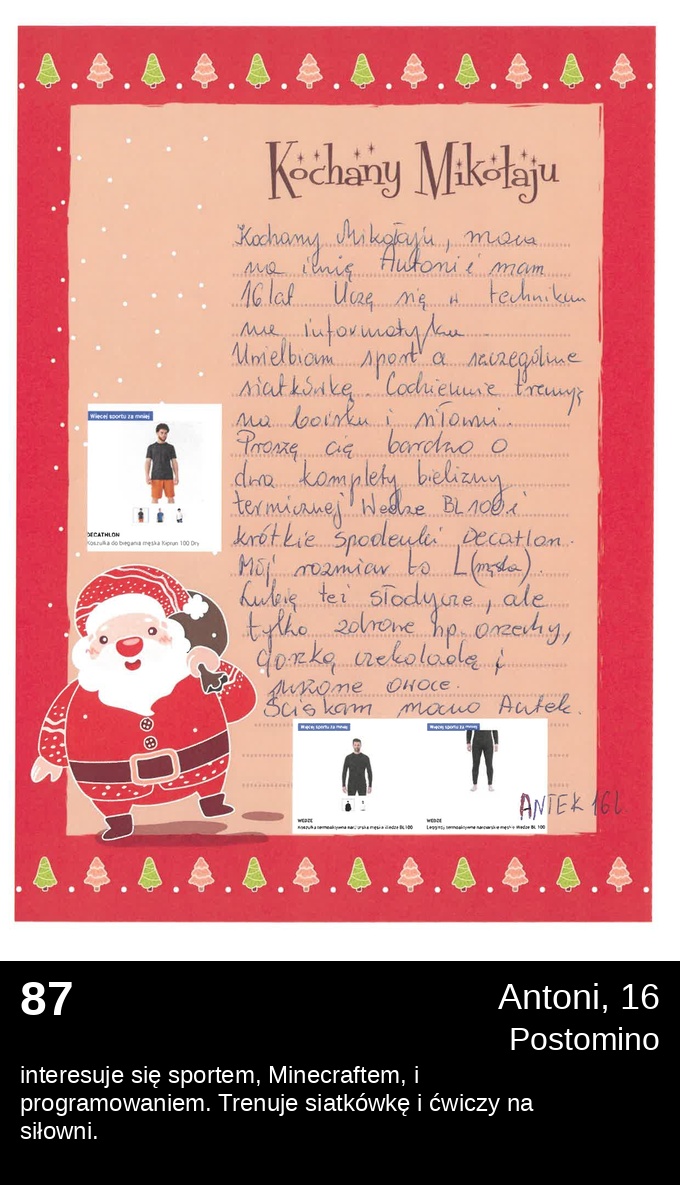 Kochany Mikołaju
Kochany Mikołaju, mam
na imię Antoni i mam
16 lat Uczę się w technikum
na informatyka.
Uwielbiam sport a szczególnie
siatkówkę. Codziennie trenuję
na boisku i siłowni.
Proszę cię bardzo o
dwa komplety bielizny
termicznej Wedze BL 100 i
krótkie spodenki Decatlon.
Mój rozmiar to L (męska).
Lubię też słodycze, ale
tylko zdrowe np. orzechy,
gorzką czekoladę i
suszone owoce.
Ściskam mocno Antek.
Więcej sportu za mniej
DECATHLON
Koszulka do biegania męska Kiprun 100 Dry
Więcej sportu za mniej
WEDZE
Koszulka termoaktywna narciarska męska Wedze BL 100
Więcej sportu za mniej
WEDZE
Legginsy termoaktywne narciarskie męskie Wedze BL 100
ANTEK 16 L
87
Antoni, 16
Postomino
interesuje się sportem, Minecraftem, i
programowaniem. Trenuje siatkówkę i ćwiczy na
siłowni.